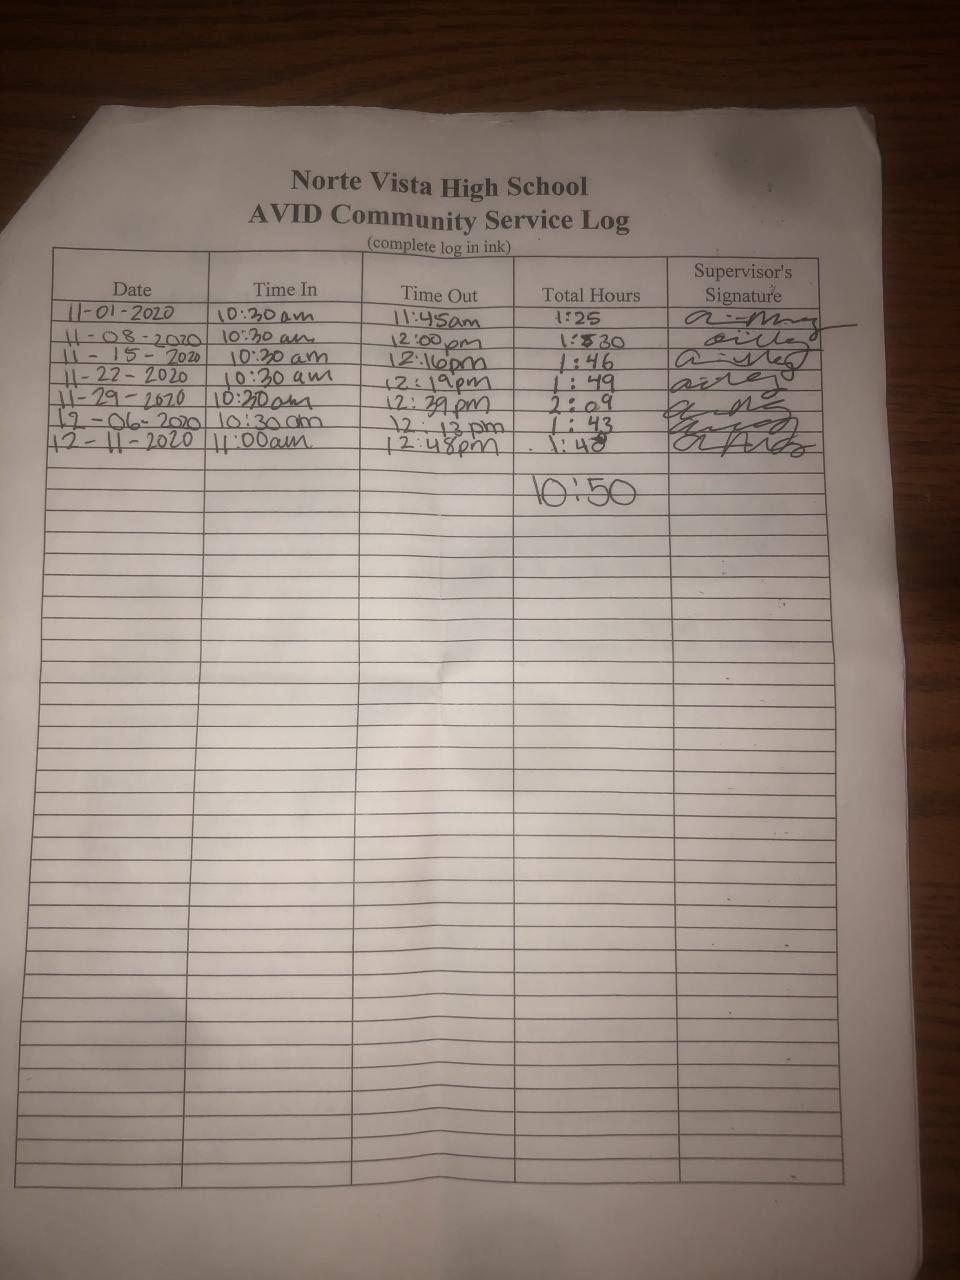 Norte Vista High School
AVID Community Service Log
(complete log in ink)
Date Time In Time Out Total Hours Supervisor's Signature
11-01-2020 10:30am 11:45am 1:25
11-08-2020 10:30 am 12:00pm 1:30
11-15-2020 10:30 am 12:16pm 1:46
11-22-2020 10:30 am 12:19pm 1:49
11-29-2020 10:30am 12:39pm 2:09
12-06-2020 10:30am 12:13pm 1:43
12-11-2020 11:00am 12:48pm 1:48
10:50